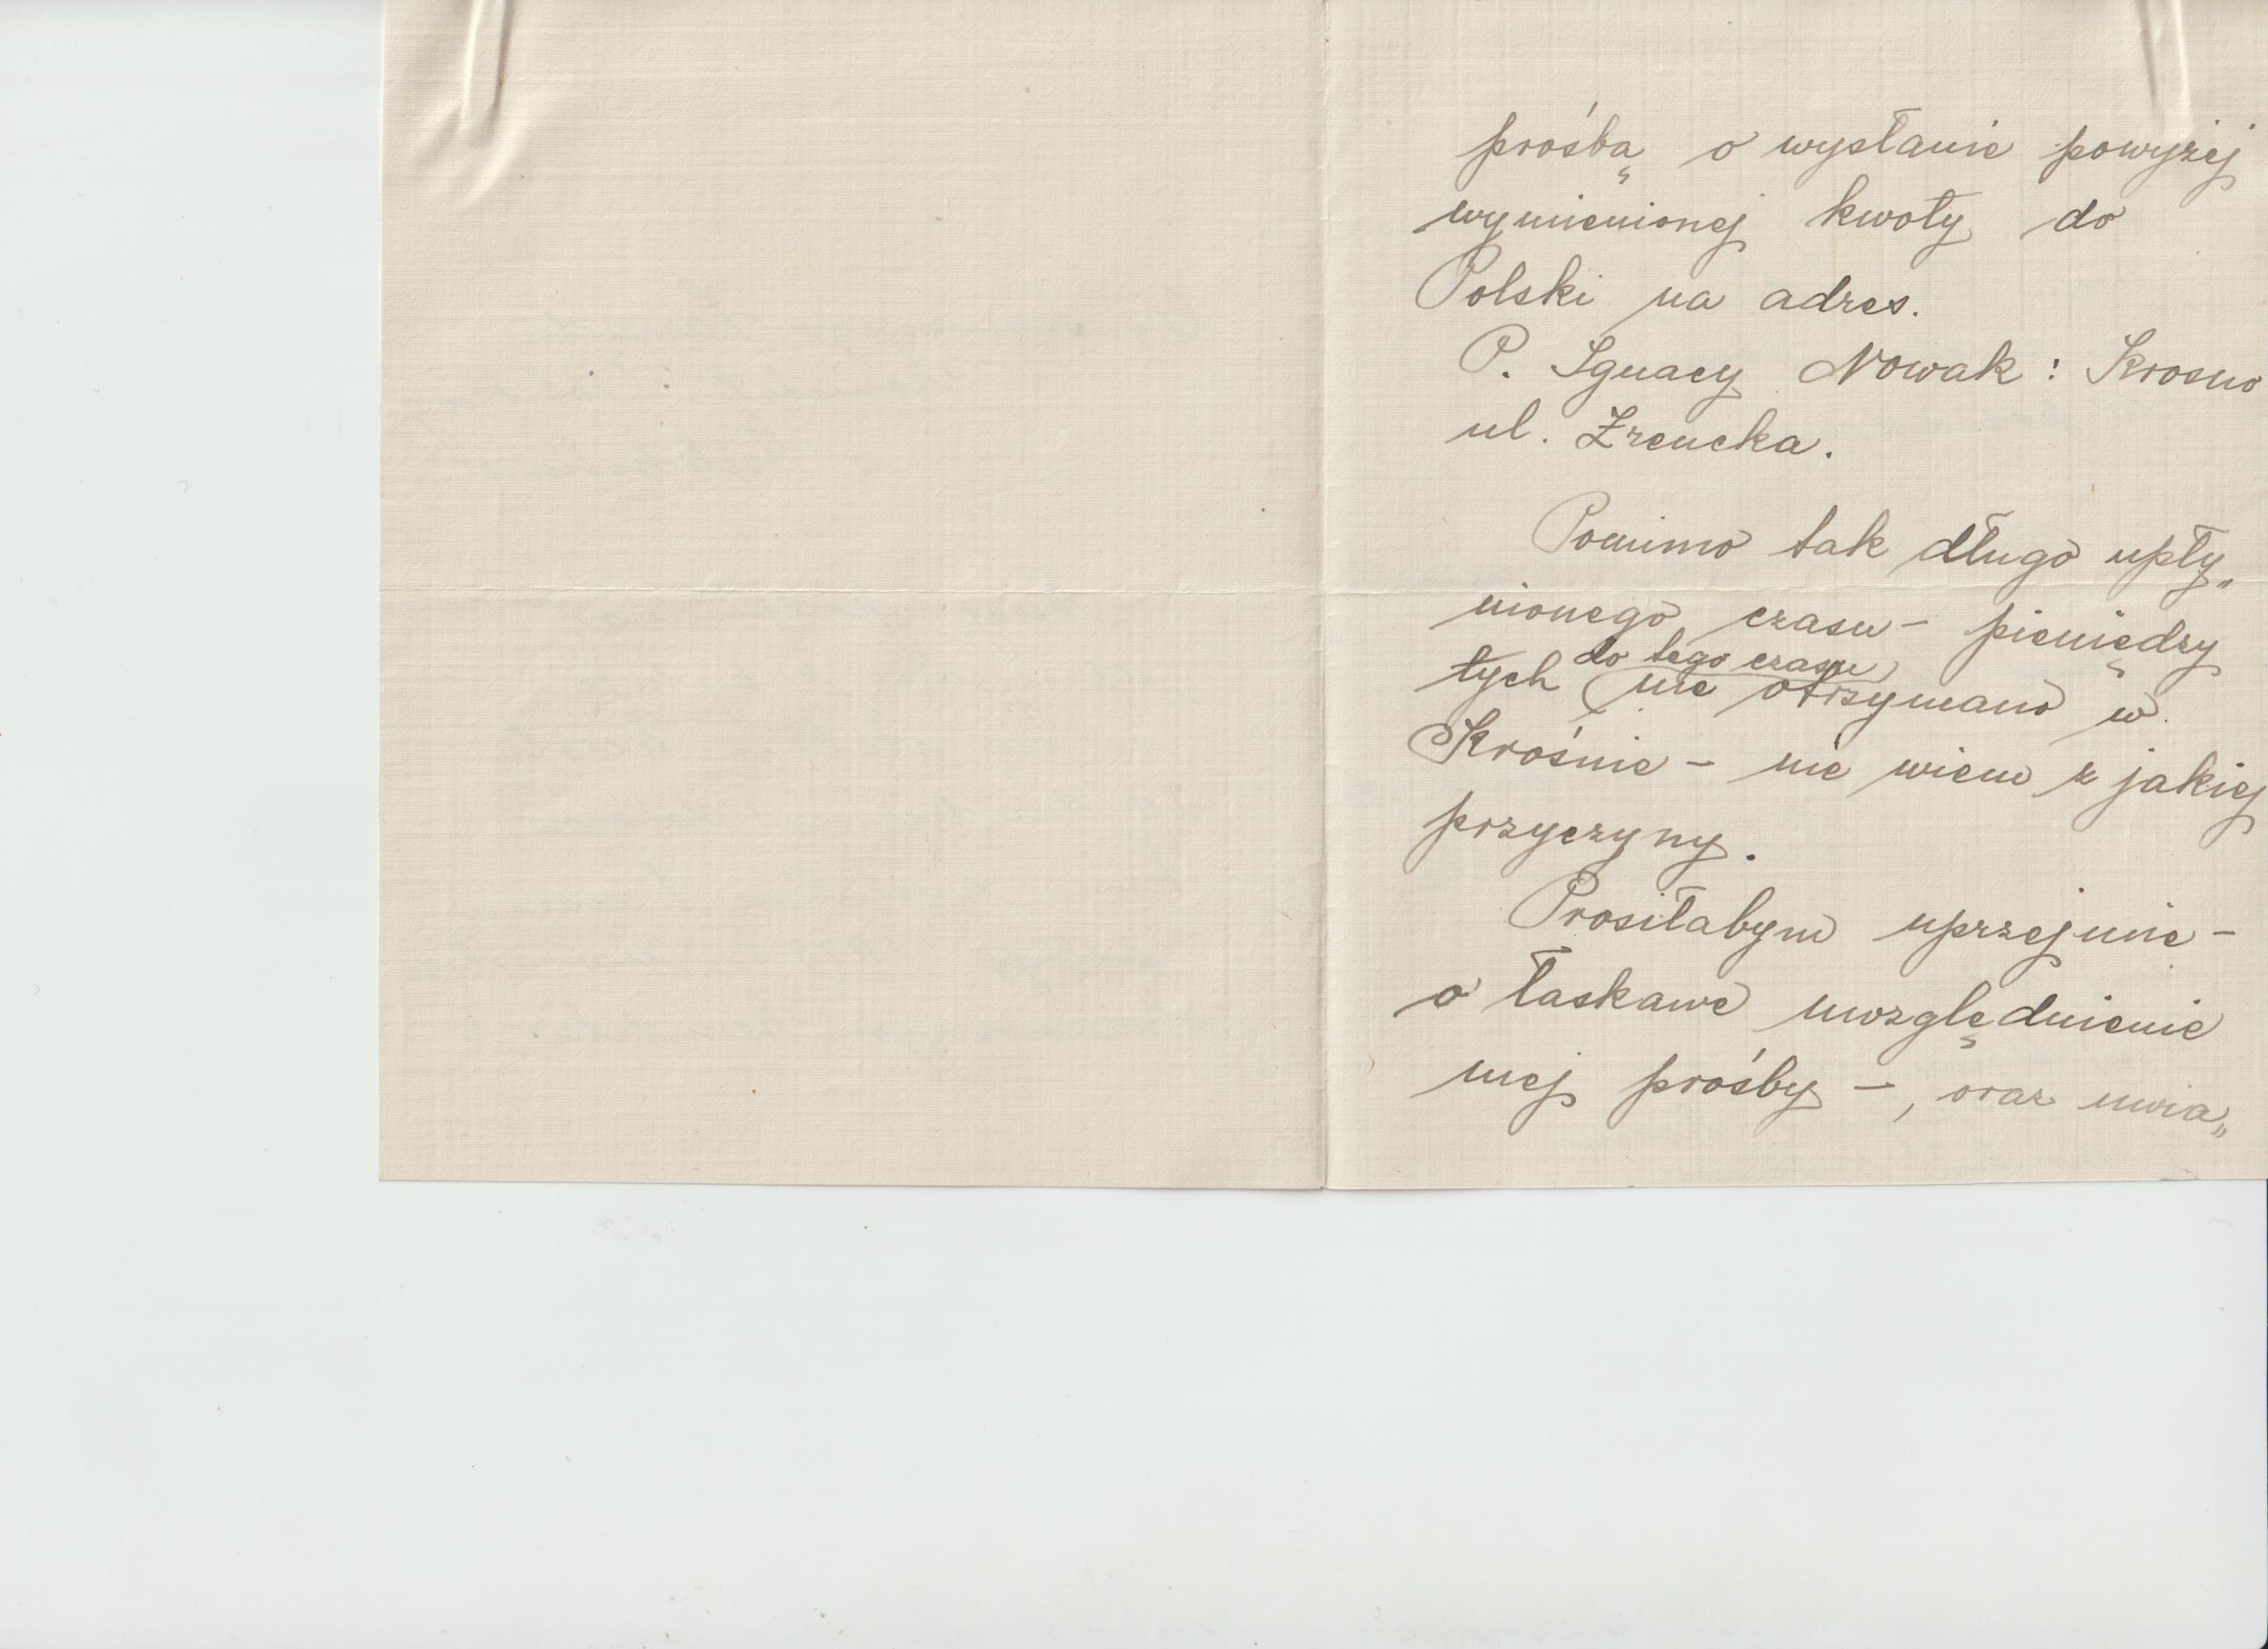 prośbą o wysłanie powyżej
wymienionej kwoty do
Polski na adres.
P. Ignacy Nowak : Krosno
ul. Żrencka.
Pomimo tak długo upły„
nionego czasu – pieniędzy
do tego czasu
tych nie otrzymano w
Krośnie – nie wiem z jakiej
przyczyny.
Prosiłabym uprzejmie –
o łaskawe uwzględnienie
mej prośby – , oraz uwia„